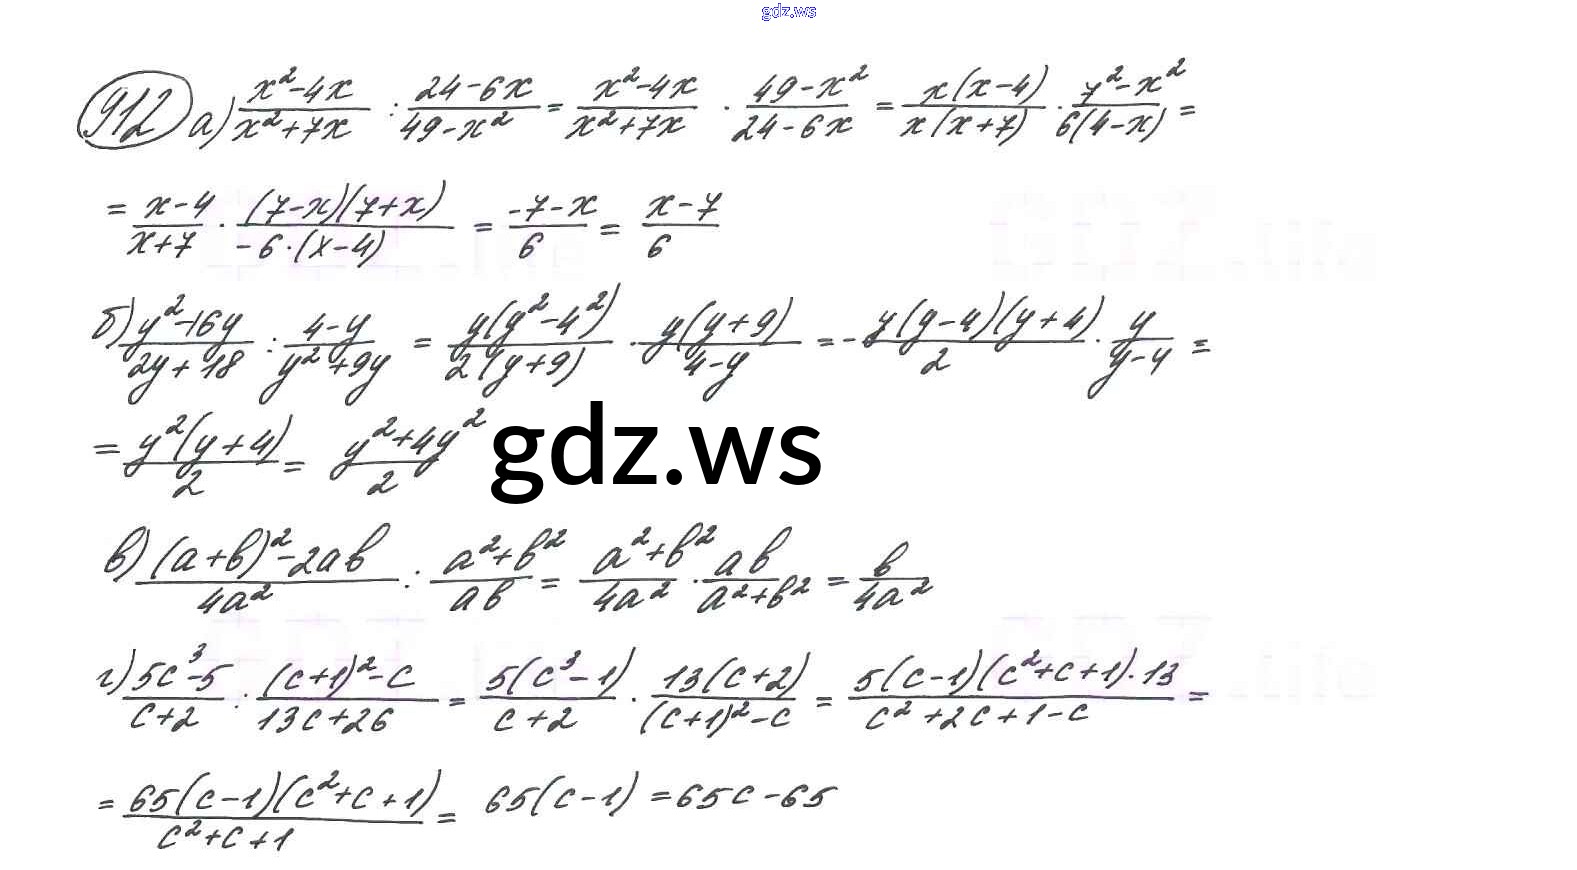 gdz.ws
912 а) (x²-4x)/(x²+7x) : (24-6x)/(49-x²) = (x²-4x)/(x²+7x) · (49-x²)/(24-6x) = (x(x-4))/(x(x+7)) · (7²-x²)/(6(4-x)) =
= (x-4)/(x+7) · ((7-x)(7+x))/(-6·(x-4)) = (-7-x)/6 = (x-7)/6
б) (y²-16y)/(2y+18) : (4-y)/(y²+9y) = (y(y²-4²))/(2(y+9)) · (y(y+9))/(4-y) = - (y(y-4)(y+4))/2 · y/(y-4) =
= (y²(y+4))/2 = (y²+4y²)/2
gdz.ws
в) ((a+b)²-2ab)/(4a²) : (a²+b²)/(ab) = (a²+b²)/(4a²) · (ab)/(a²+b²) = b/(4a²)
г) (5c³-5)/(c+2) : ((c+1)²-c)/(13c+26) = (5(c³-1))/(c+2) · (13(c+2))/((c+1)²-c) = (5(c-1)(c²+c+1)·13)/(c²+2c+1-c) =
= (65(c-1)(c²+c+1))/(c²+c+1) = 65(c-1) = 65c-65